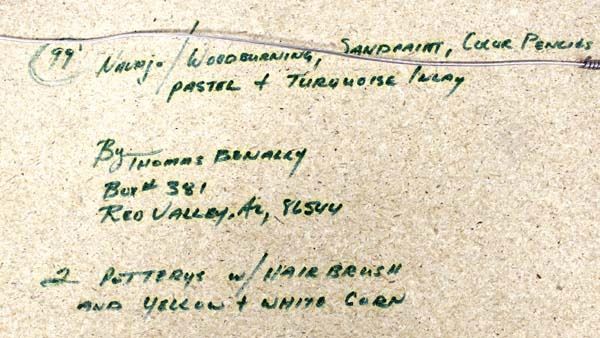 (99' Navajo / Woodburning, Sandpaint, Color Pencils
pastel + Turquoise Inlay
By Thomas Benally
Box# 381
Red Valley, Az, 86544
2 Potterys w/ Hair Brush
and Yellow + White Corn